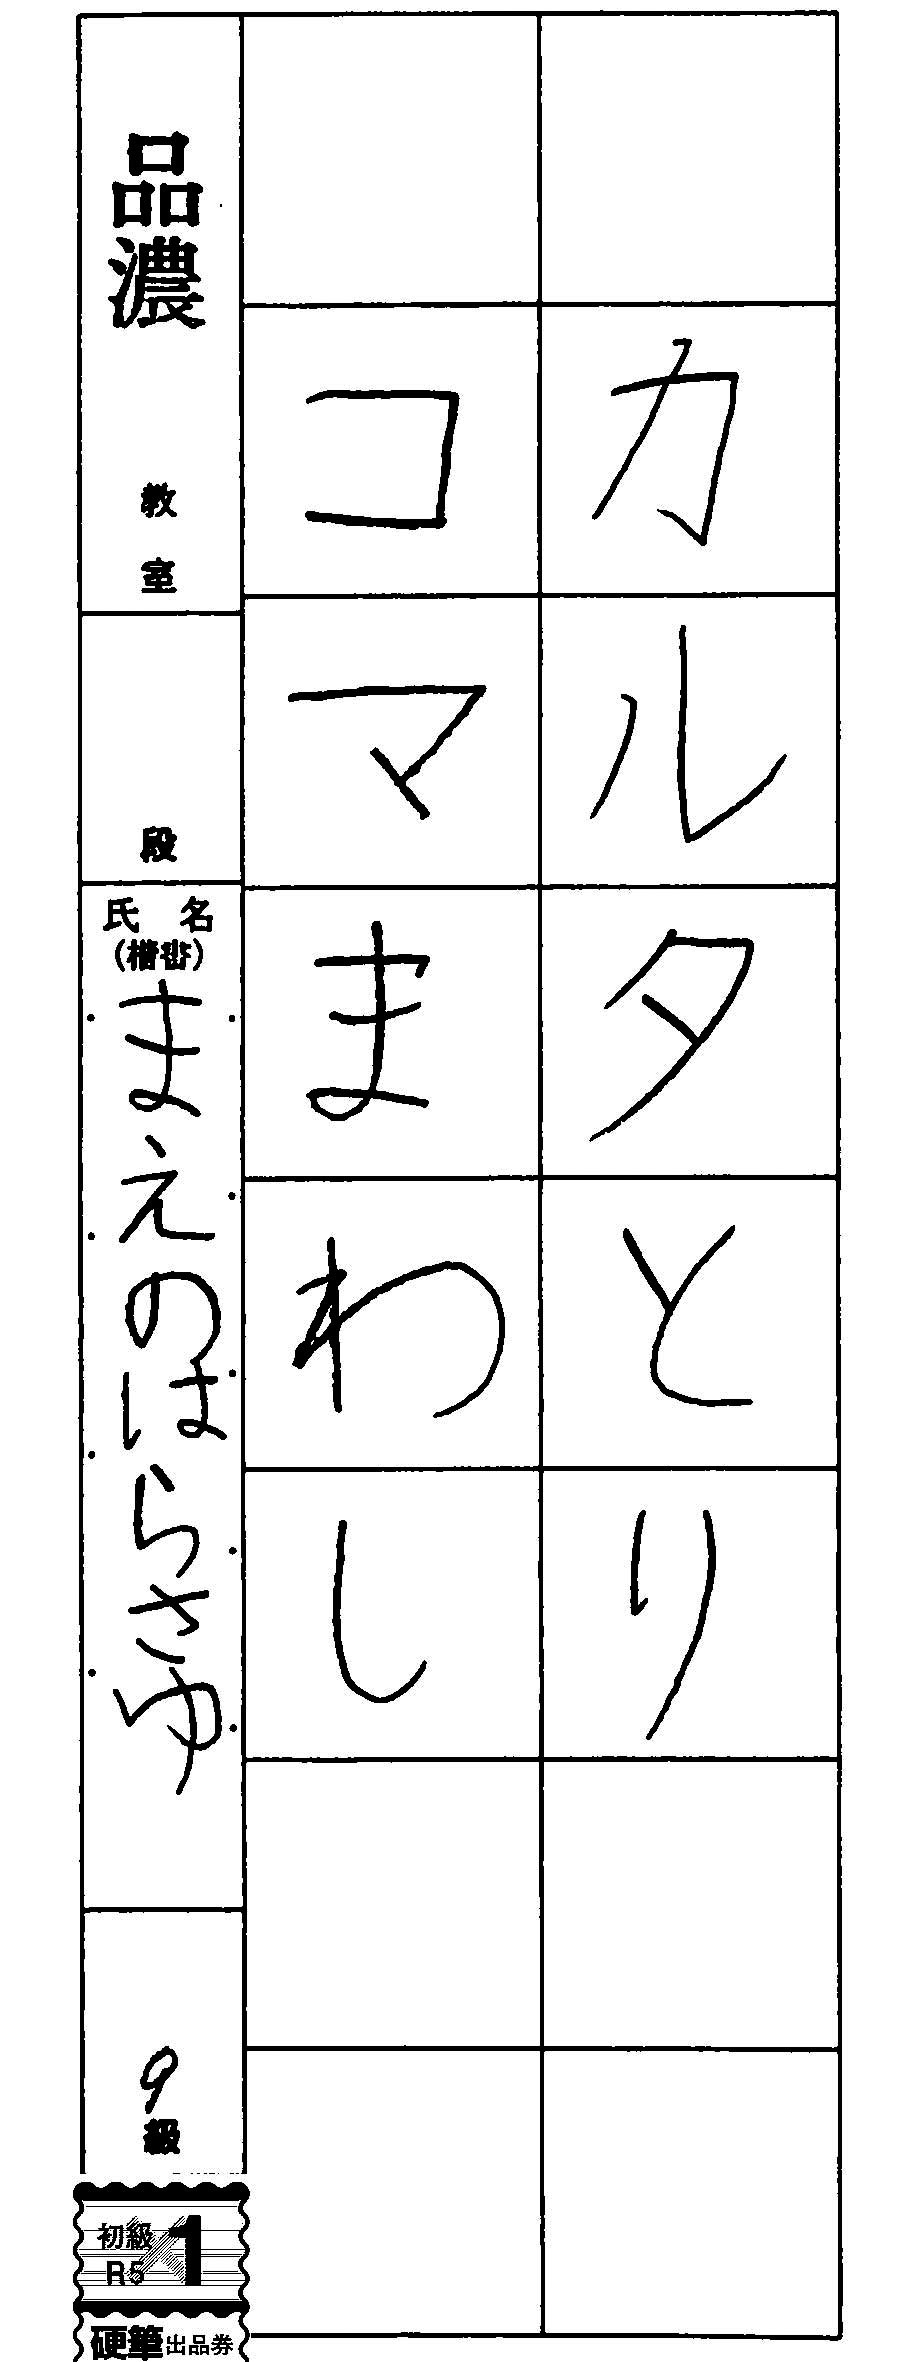 カルタとり
コママわし
品濃 教室
段
氏名
(楷書)
まえのはらさゆ
9級
初級
R5
1
硬筆出品券